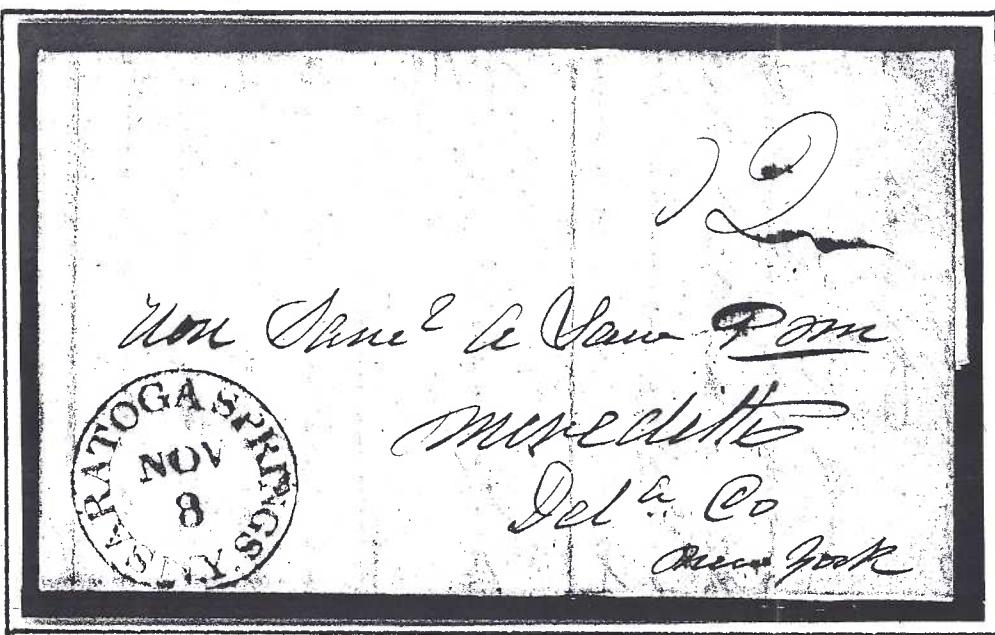 12
Hon Sam<sup>l</sup> A Law P.M
Meredith
Del<sup>a</sup> Co
New York
SARATOGA SPRINGS N.Y.
NOV
8